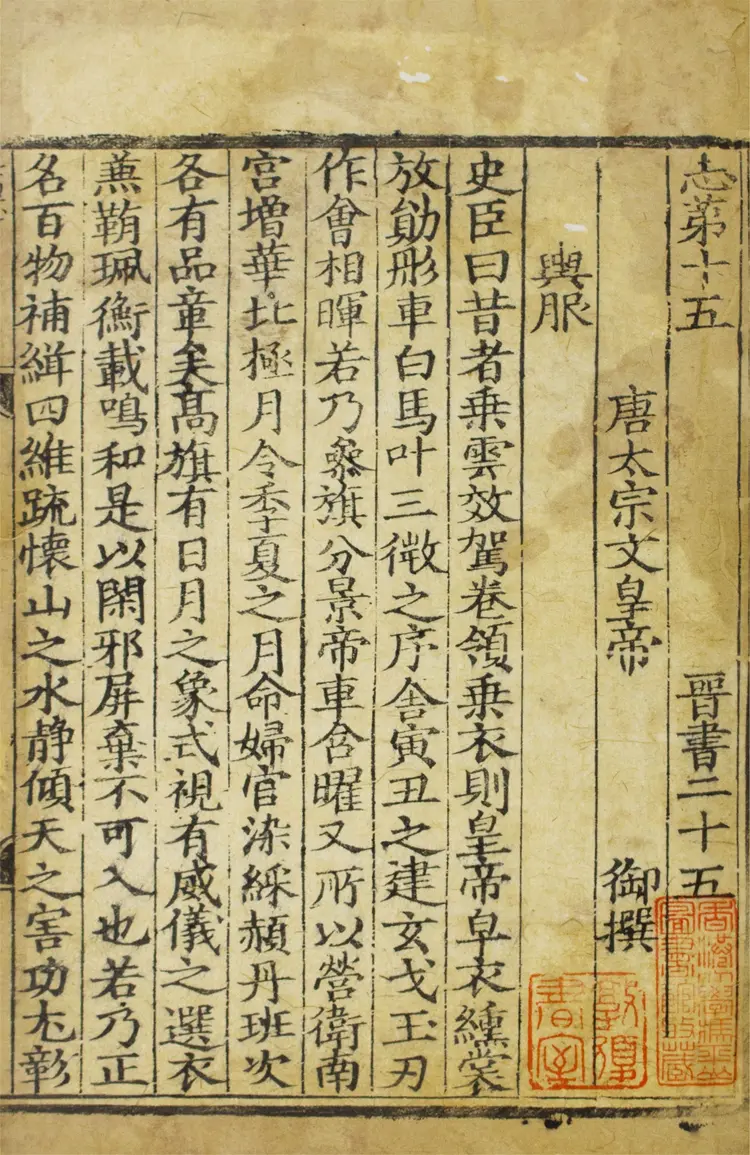 志第十五 晉書二十五
唐太宗文皇帝 御撰
輿服
史臣曰昔者乗雲效駕卷領乗衣則皇帝皁衣纁裳
放勛彤車白馬叶三微之序舎寅丑之建玄戈玉刃
作㑹相暉若乃叅旗分景帝車含曜又所以營衛南
宫増華北極月令季夏之月命婦官染綵赬丹班次
各有品章矣髙旗有日月之象式視有威儀之選衣
兼鞙珮衡載鳴和是以閑邪屏棄不可入也若乃正
名百物補緝四維疏懷山之水静傾天之害功尤彰